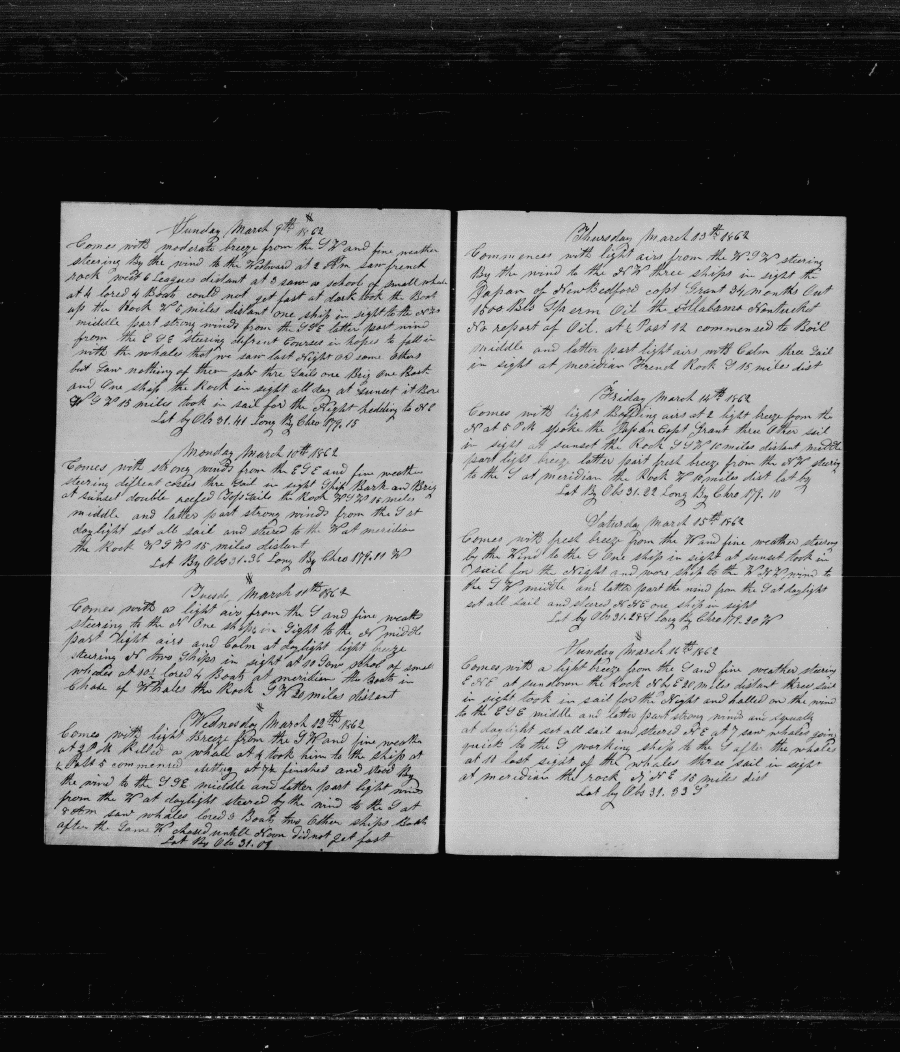 Sunday March 9th 1862
Comes with moderate breeze from the S W and fine weather
steering By the wind to the Westward at 2 Pm saw french
rock west 6 Leagues distant at 3 saw a school of small whales
at 4 lored 4 Boats could not get fast at dark took the Boat
up the Rock W 6 miles distant one ship in sight to the
middle part strong winds from the S S E latter part wind
from the E S E steering difrent Courses in hopes to fall in
with the whales that we saw last Night or some others
but saw nothing of them saw thre Sails one Brig one Bark
and One ship the Rock in sight all day at sunset it Bore
W S W 15 miles took in sail for the Night hedding to N E
Lat by Obs 31.41 Long By Chro 179.15
Monday March 10th 1862
Comes with strong winds from the E S E and fine weather
steering diffrent corses thre Sail in sight Ship Bark an Brig
at sunset double reefed Top Sails the Rock W S W 15 miles
middle and latter part strong winds from the S at
daylight sot all sail and stered to the W at meridian
the Rock W S W 15 miles distant
Lat By Obs 31.36 Long By Chro 179.11 W
Tuesd March 11th 1862
Comes with a light air from the S and fine weath
steering to the N One ship in Sight to the N middle
part light airs and Calm at daylight light breeze
steering N two Ships in sight at 10 Saw School of small
whales at 10½ lored 4 Boats at meridian the Boats in
Chase of Whales the Rock S W 20 miles distant
Wednesday March 12th 1862
Comes with light Breeze from the S W and fine weathe
at 2 P M killed a whale at 4 took him to the ship at
5 commenced cutting at 7½ finished and sterd By
the wind to the S S E middle and latter part light winds
from the W at daylight steared by the wind to the S at
8 Am saw whales lored 3 Boats two Other ships Boats
after the Same W chased untill Noon did not get fast
Lat By Obs 31.09
Thursday March 13th 1862
Commences with light airs from the W S W steering
By the wind to the N W three ships in sight the
Japan of New Bedford capt Grant 34 months Out
1500 Bls Sperm Oil the Allabama Nantucket
No report of Oil. at ½ Past 12 commensed to Boil
middle and latter part light airs with Calm three Sail
in sight at meridian French Rock S 15 miles dist
Friday March 14th 1862
Comes with light Baffling airs at 2 light breeze from the
N at 5 P.M spoke the Japan Capt Grant three Other sail
in sight at sunset the Rock S S W 10 miles distant middle
part light breeze latter part fresh breeze from the N W steering
to the S at meridian the Rock W miles dist lat by
Lat By Obs 31.22 Long By Chro 179.10
Saturday March 15th 1862
Comes with fresh breeze from the W and fine weather steering
by the Wind to the S One ship in sight at sunset took in
sail for the Night and wore ship to the W N W wind to
the S W middle and latter part the wind from the S at daylight
sot all sail and steered N N E one ship in sight
Lat by Obs 31.28 S Long By Chro 179.20 W
Sunday March 16th 1862
Comes with a light breeze from the S and fine weather steering
E N E at sundown the Rock N b E 20 miles distant three sail
in sight took in sail for the Night and halled on the wind
to the E S E middle and latter part strong winds and squaly
at daylight sot all sail and steered N E at 7 saw whales going
quick to the S working ship to the S after the whales
at 10 lost sight of the whales three sail in sight
at meridian the rock N N E 15 miles dist
Lat by Obs 31.33 S